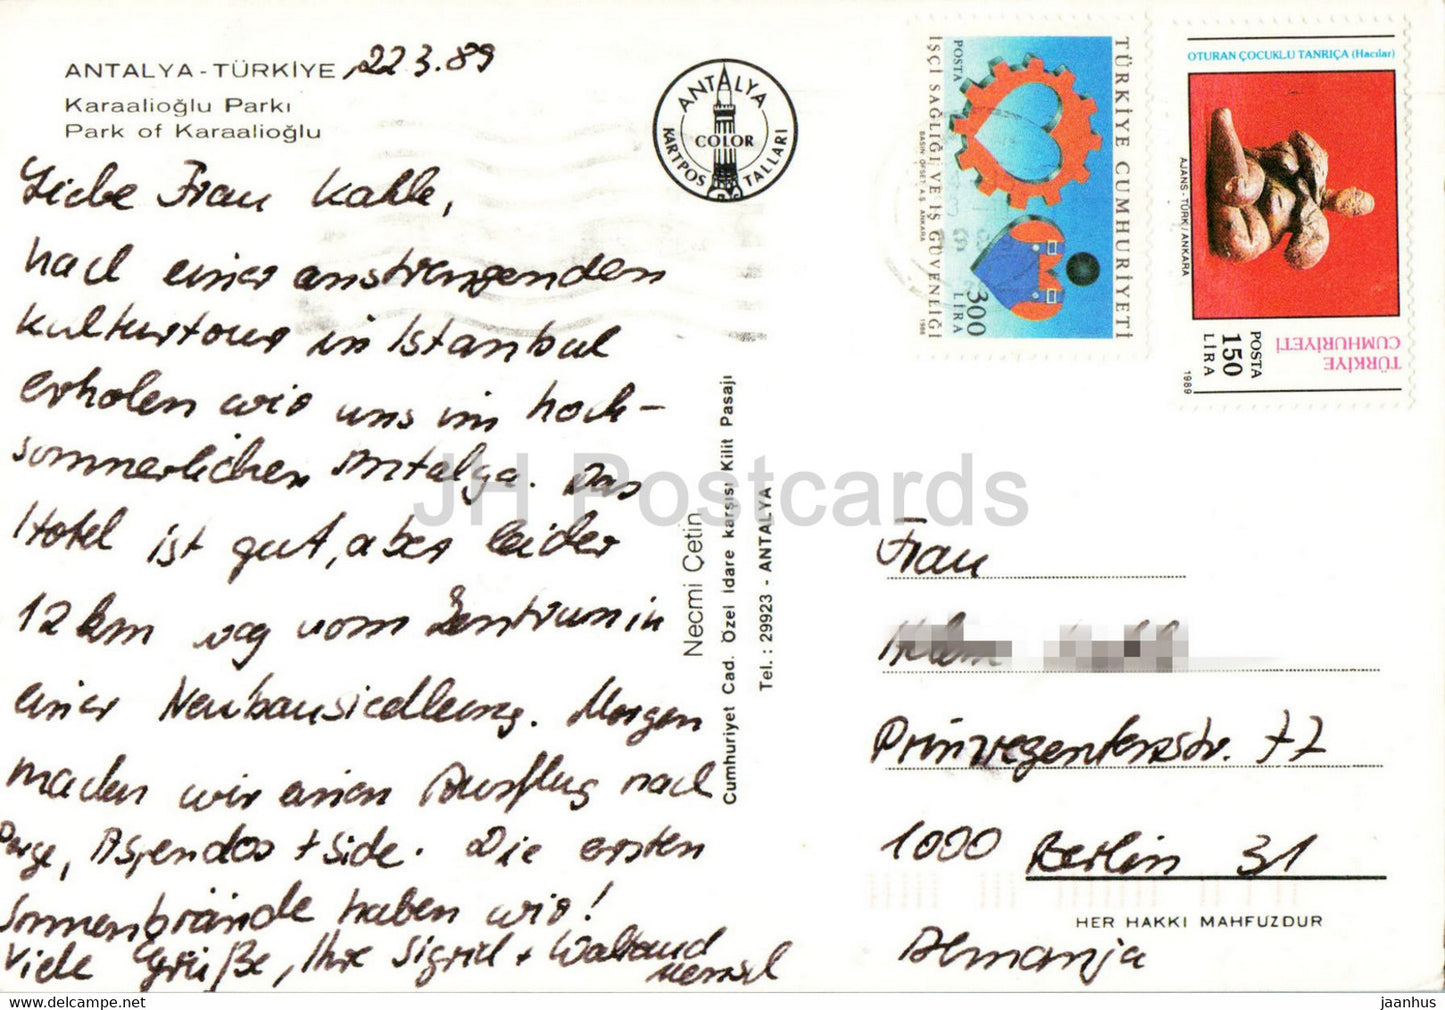 ANTALYA - TÜRKİYE, 22.3.89
Karaalioğlu Parkı
Park of Karaalioğlu
Liebe Frau Kahle,
nach einer anstrengenden
Kulturtour in Istanbul
erholen wir uns im hoch-
sommerlichen Antalya. Das
Hotel ist gut, aber leider
12 km weg vom Zentrum in
einer Neubausiedlung. Morgen
machen wir einen Ausflug nach
Perge, Aspendos + Side. Die ersten
Sonnenbrände haben wir!
Viele Grüße, Ihre Sigrid + Waltraud
ANTALYA
COLOR
KARTPOSTALLARI
Necmi Çetin
Cumhuriyet Cad. Özel İdare karşısı Kilit Pasajı
Tel.: 29923 - ANTALYA
TÜRKİYE CUMHURİYETİ
POSTA
300
LİRA
İŞÇİ SAĞLIĞI VE İŞ GÜVENLİĞİ
BASIN OFSET A.Ş. ANKARA
1988
OTURAN ÇOCUKLU TANRIÇA (Hacılar)
AJANS - TÜRK / ANKARA
TÜRKİYE
CUMHURİYETİ
POSTA
150
LİRA
1989
Frau
Prinzregentenstr. 77
1000 Berlin 31
HER HAKKI MAHFUZDUR
Almanja
JH Postcards
jaanhus